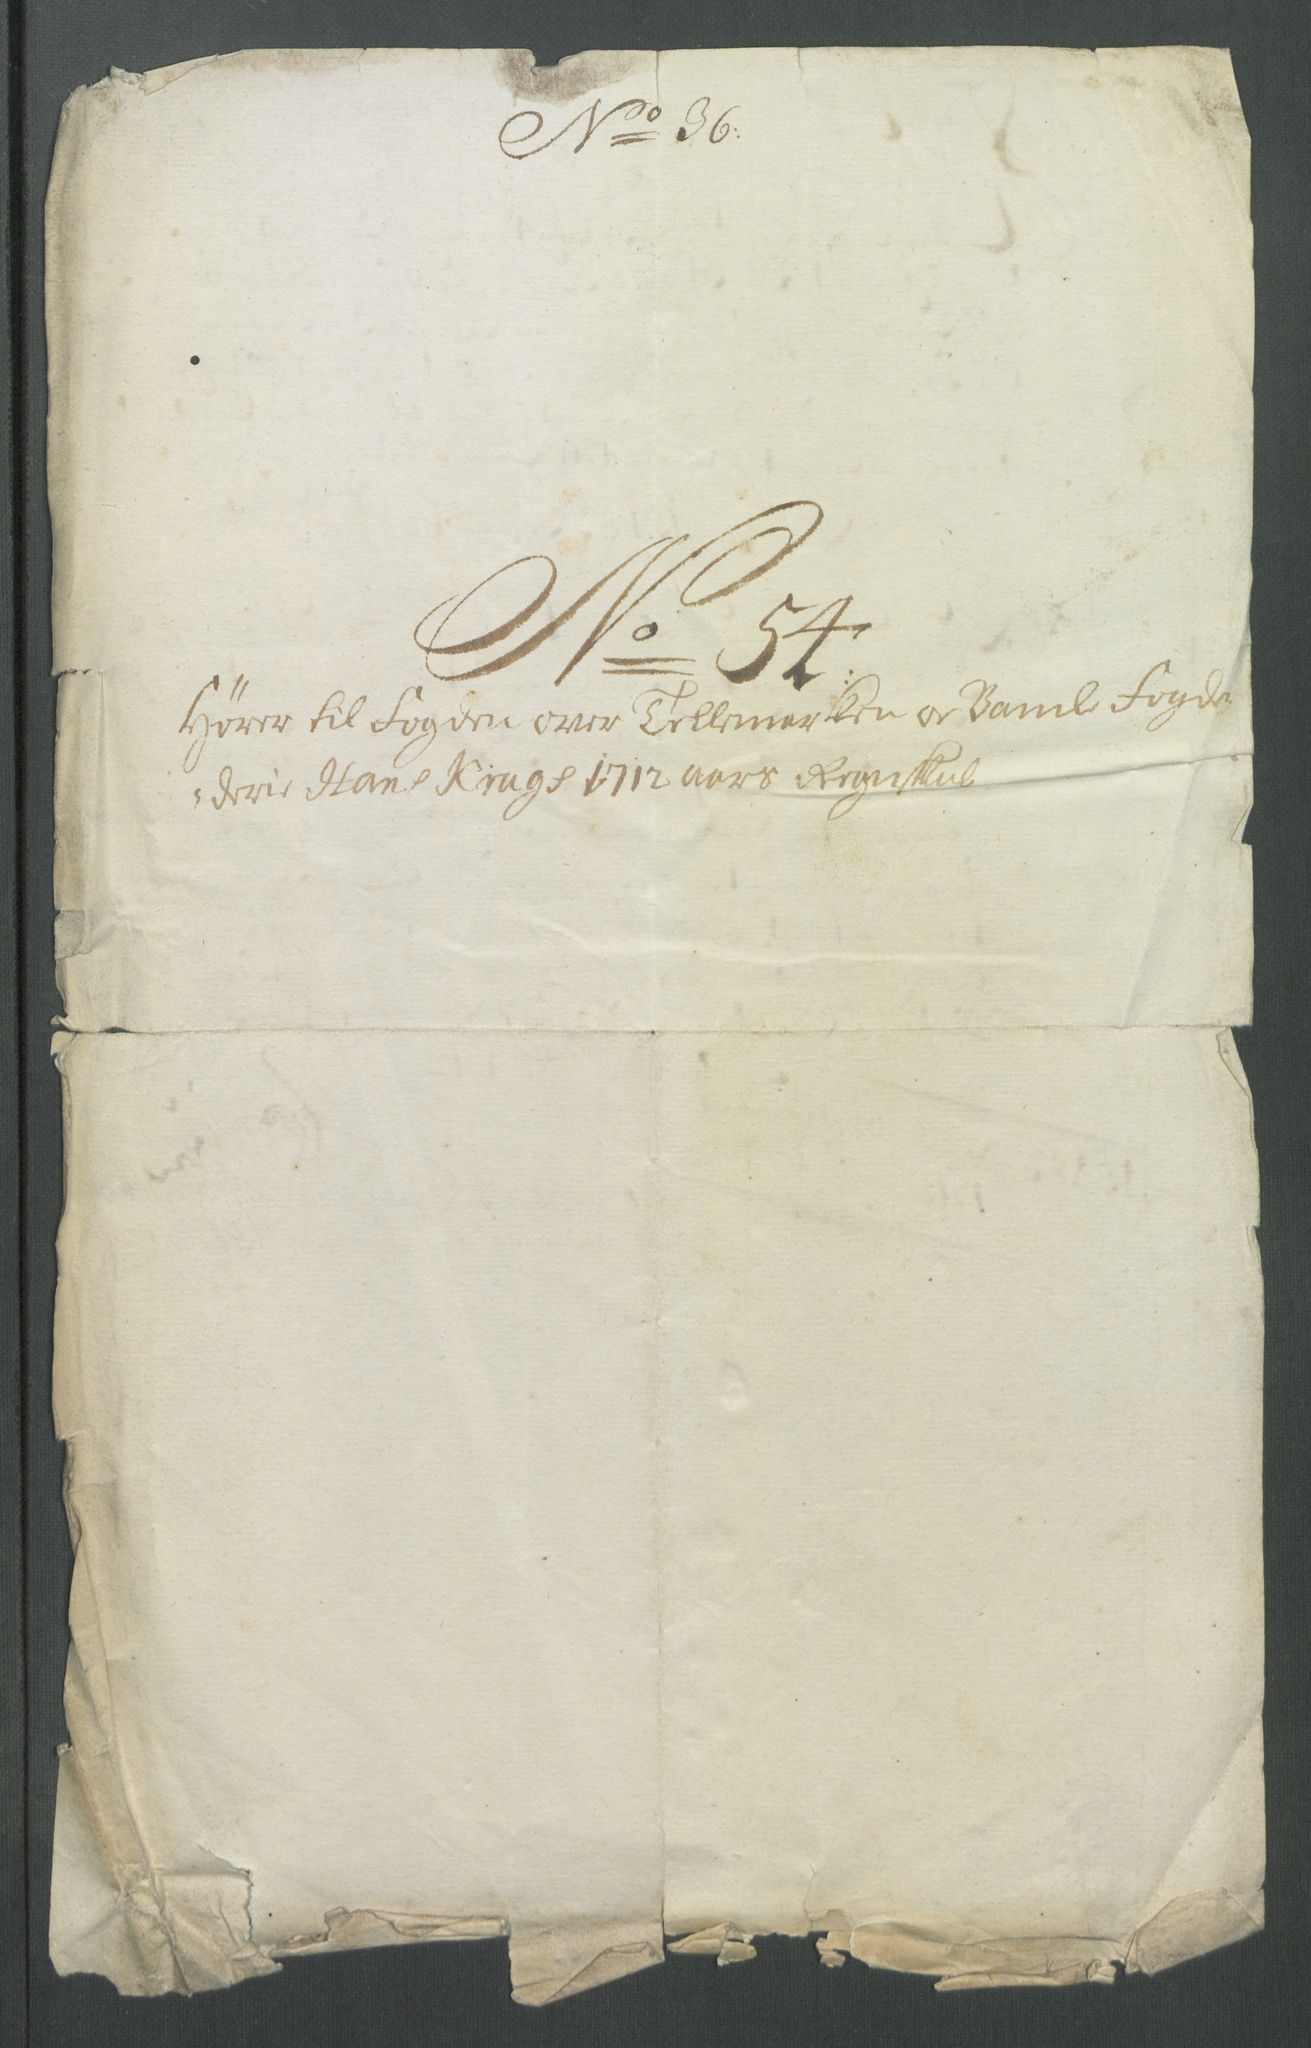 No 36.
No 54.
Hører til Fogden over Tellemarken oc Bamle Fogde-
derie Hans Krags 1712 aars Regnskab